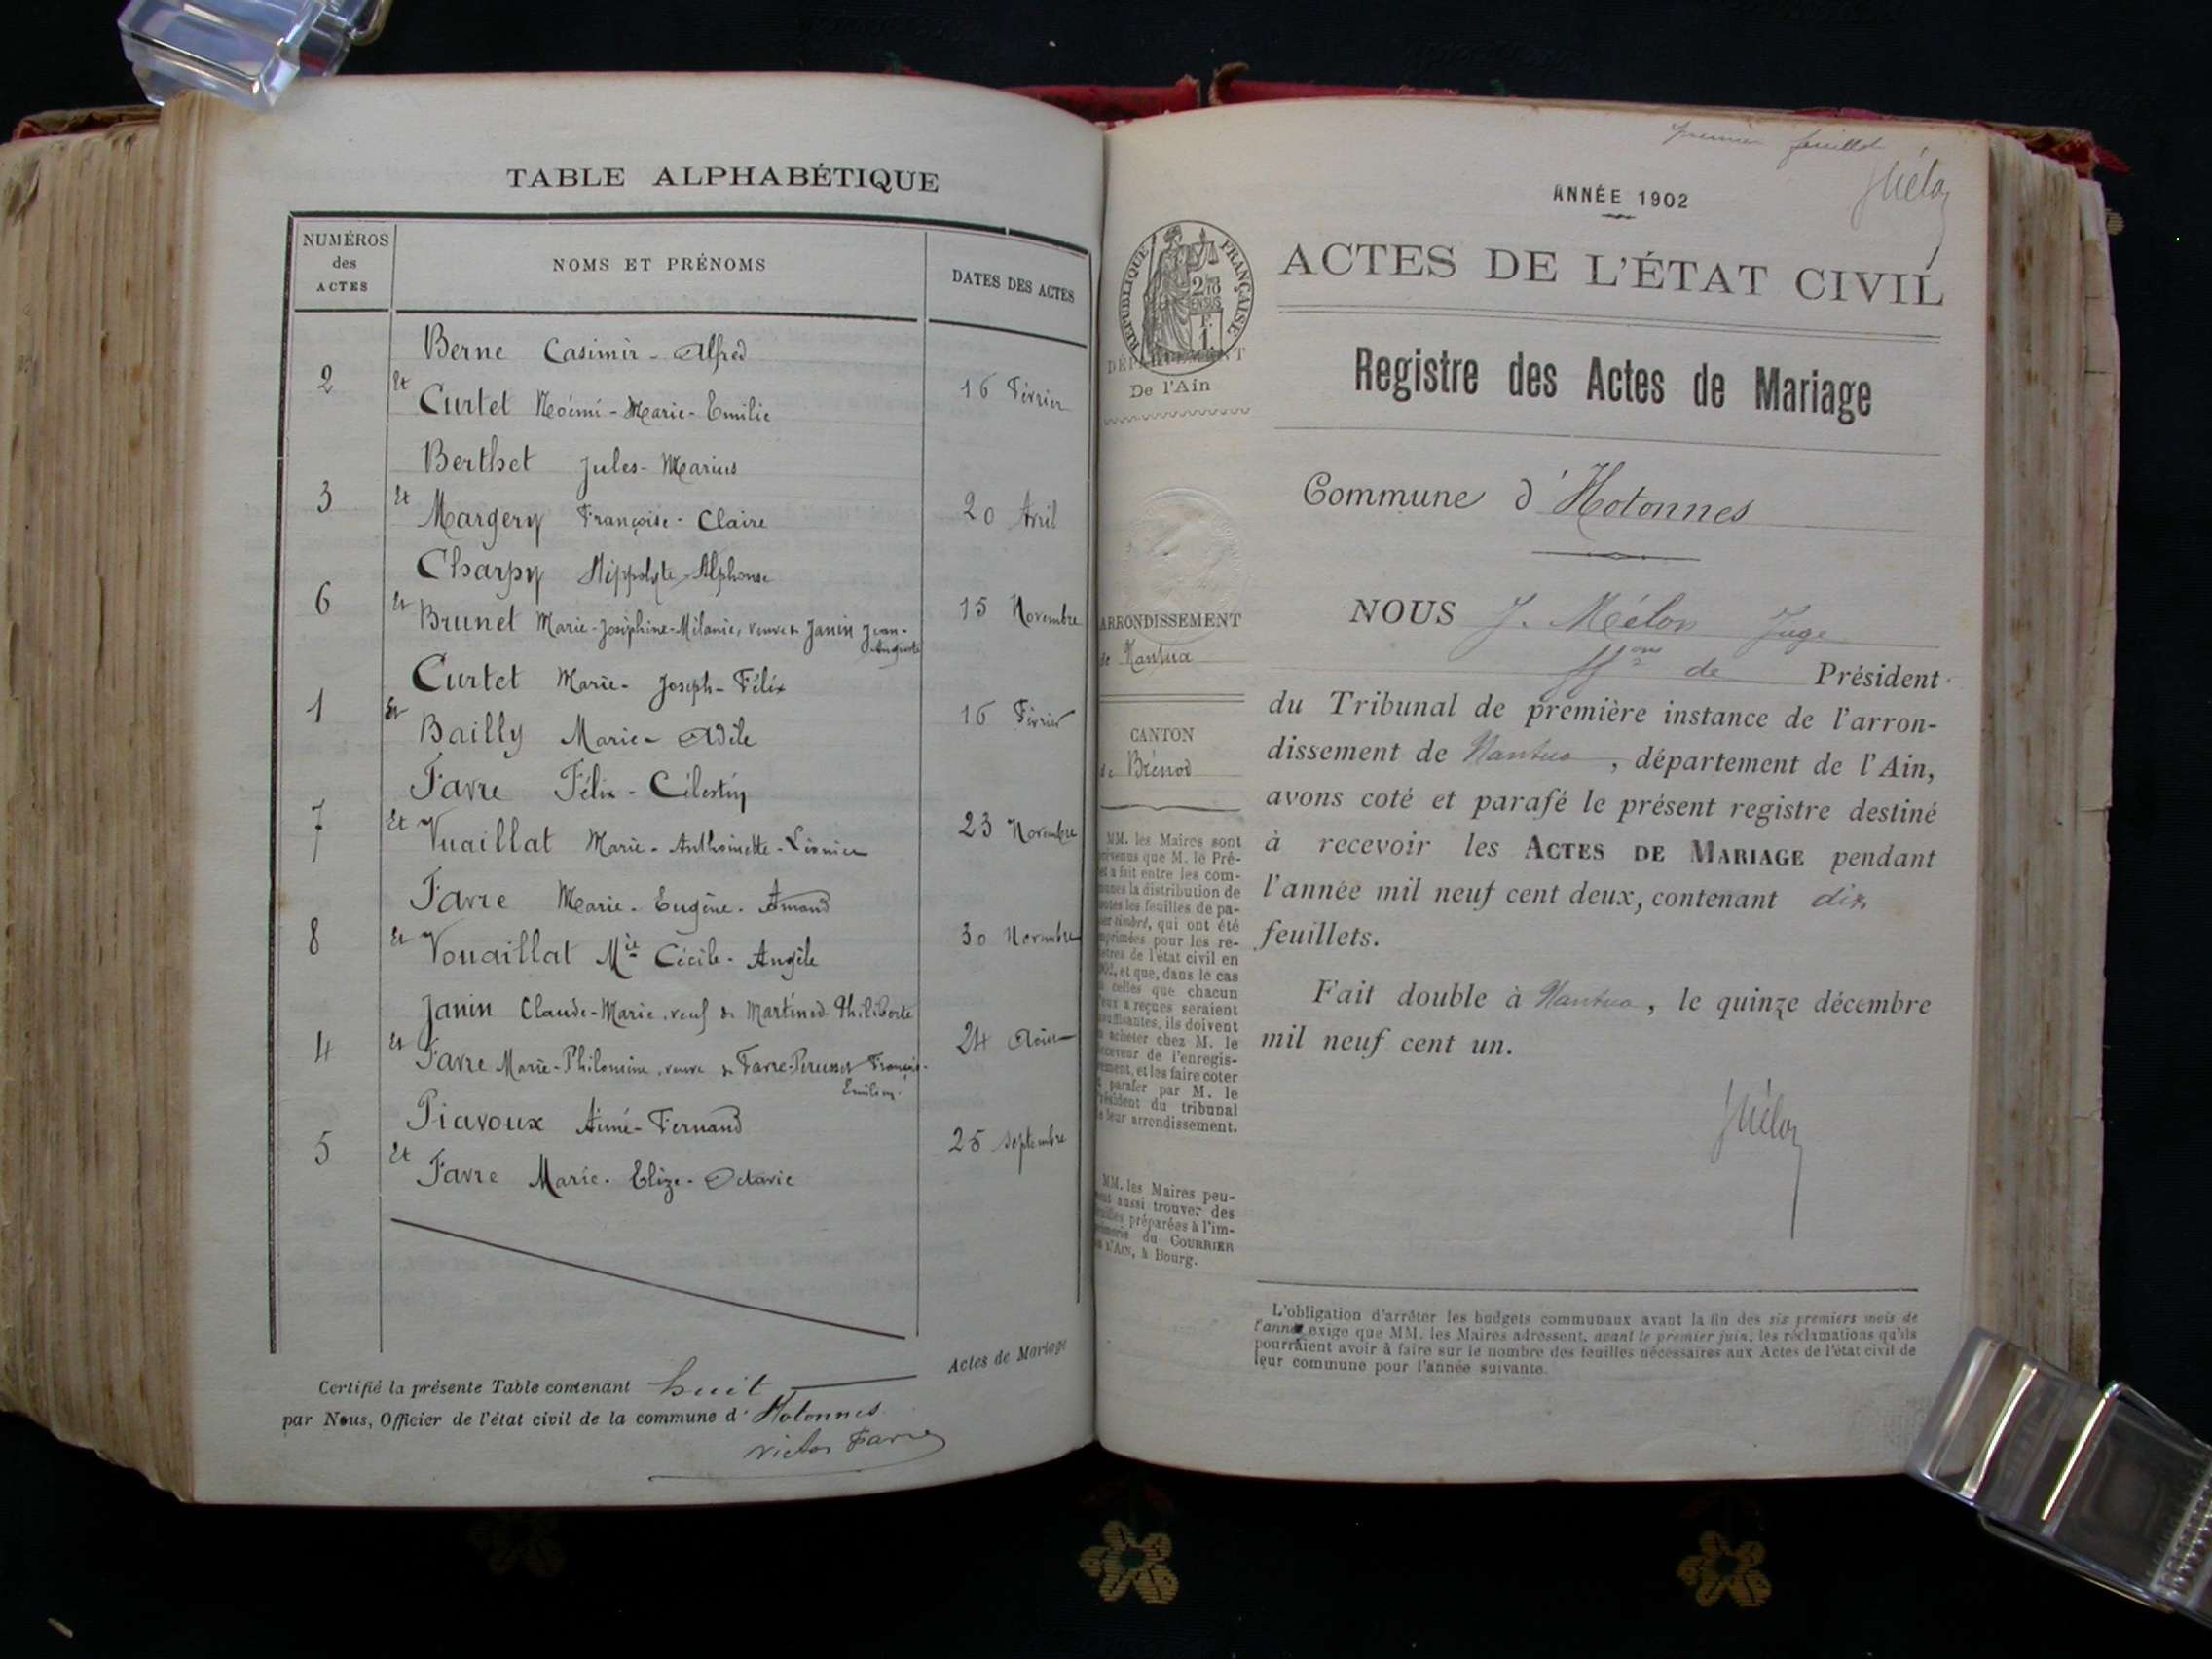 TABLE ALPHABÉTIQUE
NUMÉROS des ACTES
NOMS ET PRÉNOMS
DATES DES ACTES
Berne Casimir - Alfred
2 et Curtet Noémi - Marie - Emilie 16 Février
Berthet Jules - Marius
3 et Margery Françoise - Claire 20 Avril
Charpy Hippolyte - Alphonse
6 et Brunet Marie - Joséphine - Mélanie, veuve de Janin Jean-
Auguste 15 Novembre
Curtet Marie - Joseph - Félix
1 et Bailly Marie - Adèle 16 Février
Favre Félix - Célestin
7 et Vuaillat Marie - Anthoinette - Léonie 23 Novembre
Favre Marie - Eugène - Amand
8 et Vouaillat Mie Cécile - Angèle 30 Novembre
Janin Claude - Marie, veuf de Martinod Philiberte
4 et Favre Marie - Philomène, veuve de Favre- François-
Emilien 24 Août
Piavoux Aimé - Fernand
5 et Favre Marie - Elize - Octavie 25 septembre
Actes de Mariage
Certifié la présente Table contenant huit
par Nous, Officier de l'état civil de la commune d'Hotonnes
Victor Favre
premier feuillet
JMélon
ANNÉE 1902
ACTES DE L'ÉTAT CIVIL
RÉPUBLIQUE FRANÇAISE
DÉPARTEMENT
De l'Ain
Registre des Actes de Mariage
Commune d'Hotonnes
ARRONDISSEMENT
de Nantua
CANTON
de Brénod
MM. les Maires sont
prévenus que M. le Pré-
et a fait entre les com-
munes la distribution de
toutes les feuilles de pa-
pier timbré, qui ont été
imprimées pour les re-
gistres de l'état civil en
et que, dans le cas
celles que chacun
d'eux a reçues seraient
insuffisantes, ils doivent
acheter chez M. le
receveur de l'enregis-
trement, et les faire coter
et parafer par M. le
Président du tribunal
de leur arrondissement.
MM. les Maires peu-
vent aussi trouver des
feuilles préparées à l'im-
primerie du COURRIER
DE L'AIN, à Bourg.
NOUS J. Mélon Juge
ffons de Président
du Tribunal de première instance de l'arron-
dissement de Nantua, département de l'Ain,
avons coté et parafé le présent registre destiné
à recevoir les ACTES DE MARIAGE pendant
l'année mil neuf cent deux, contenant dix
feuillets.
Fait double à Nantua, le quinze décembre
mil neuf cent un.
JMélon
L'obligation d'arrêter les budgets communaux avant la fin des six premiers mois de
l'année exige que MM. les Maires adressent, avant le premier juin, les réclamations qu'ils
pourraient avoir à faire sur le nombre des feuilles nécessaires aux Actes de l'état civil de
leur commune pour l'année suivante.